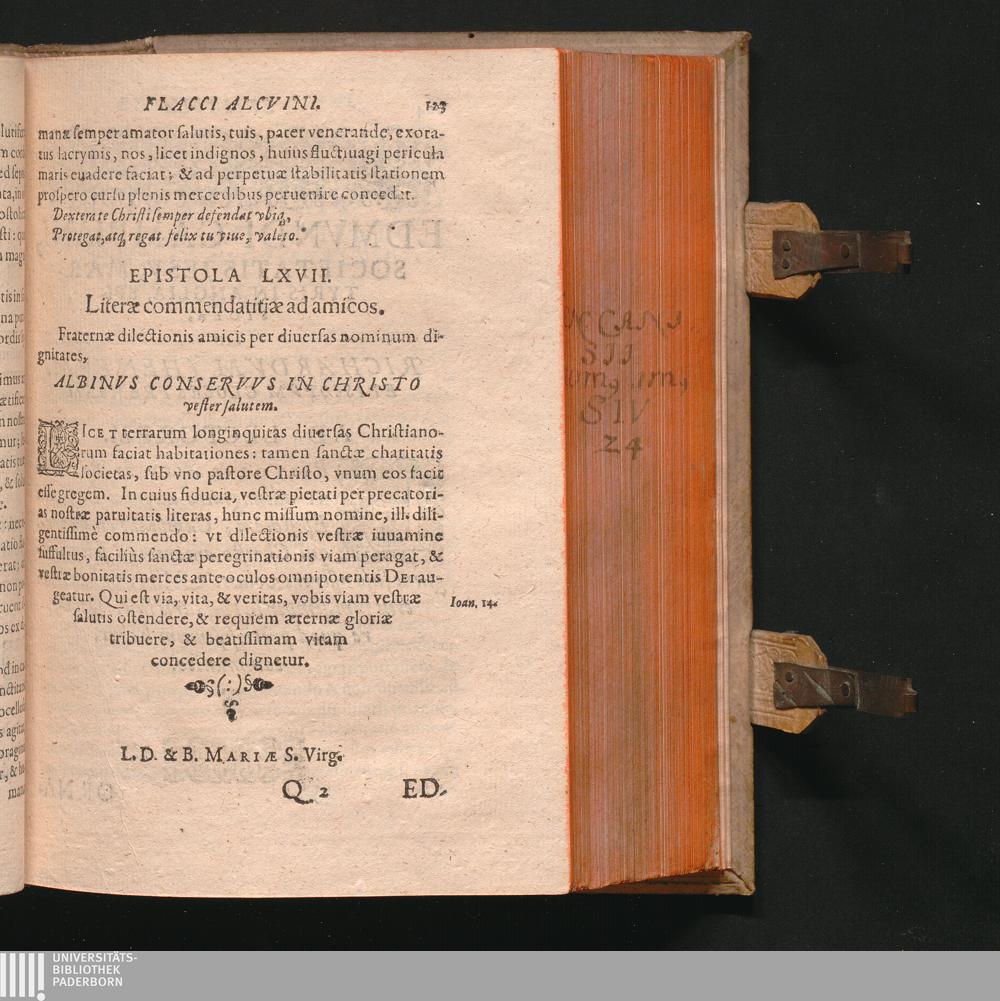 FLACCI ALCVINI. 123
manæ semper amator salutis, tuis, pater venerande, exora-
tus lacrymis, nos, licet indignos, huius fluctiuagi pericula
maris euadere faciat; & ad perpetuæ stabilitatis stationem
prospero cursu plenis mercedibus peruenire concedat.
Dextera te Christi semper defendat vbiq́,
Protegat, atq́ regat felix tu viue, valeto.
EPISTOLA LXVII.
Literæ commendatitiæ ad amicos.
Fraternæ dilectionis amicis per diuersas nominum di-
gnitates,
ALBINVS CONSERVVS IN CHRISTO
vester salutem.
LICET terrarum longinquitas diuersas Christiano-
rum faciat habitationes: tamen sanctæ charitatis
societas, sub vno pastore Christo, vnum eos facit
esse gregem. In cuius fiducia, vestræ pietati per precatori-
as nostræ paruitatis literas, hunc missum nomine, ill. dili-
gentissimè commendo: vt dilectionis vestræ iuuamine
suffultus, faciliùs sanctæ peregrinationis viam peragat, &
vestræ bonitatis merces ante oculos omnipotentis DEI au-
geatur. Qui est via, vita, & veritas, vobis viam vestræ
Ioan. 14.
salutis ostendere, & requiem æternæ gloriæ
tribuere, & beatissimam vitam
concedere dignetur.
L. D. & B. MARIÆ S. Virg.
Q 2 ED-
SIV
24
UNIVERSITÄTS-
BIBLIOTHEK
PADERBORN